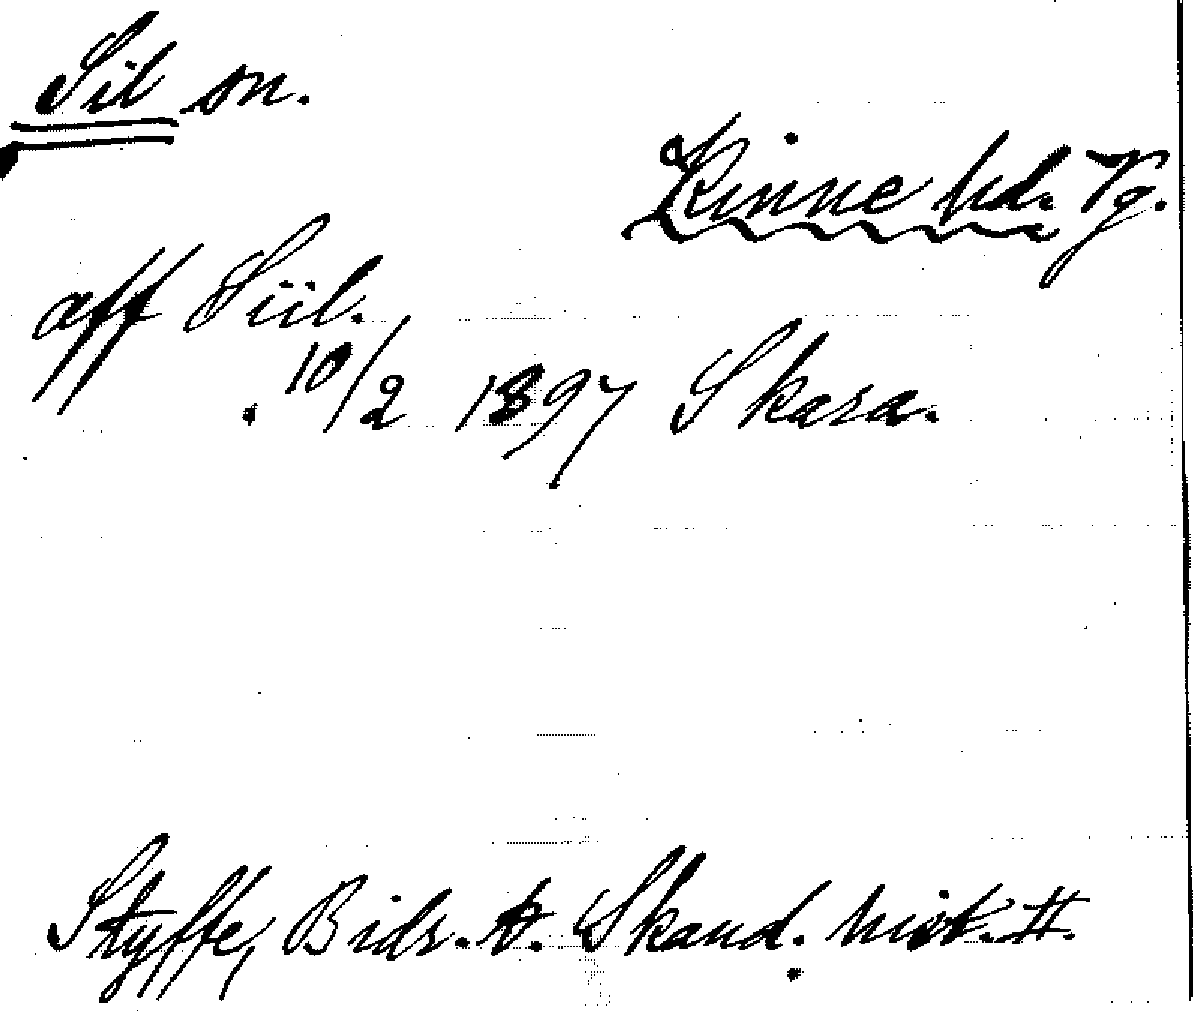 Sil sn.
Kinne hd. Vg.
aff Siil.
10/2 1397 Skara.
Styffe, Bidr. t. Skand. hist. II.